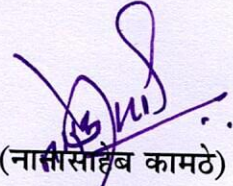 (नानासाहेब कामठे)